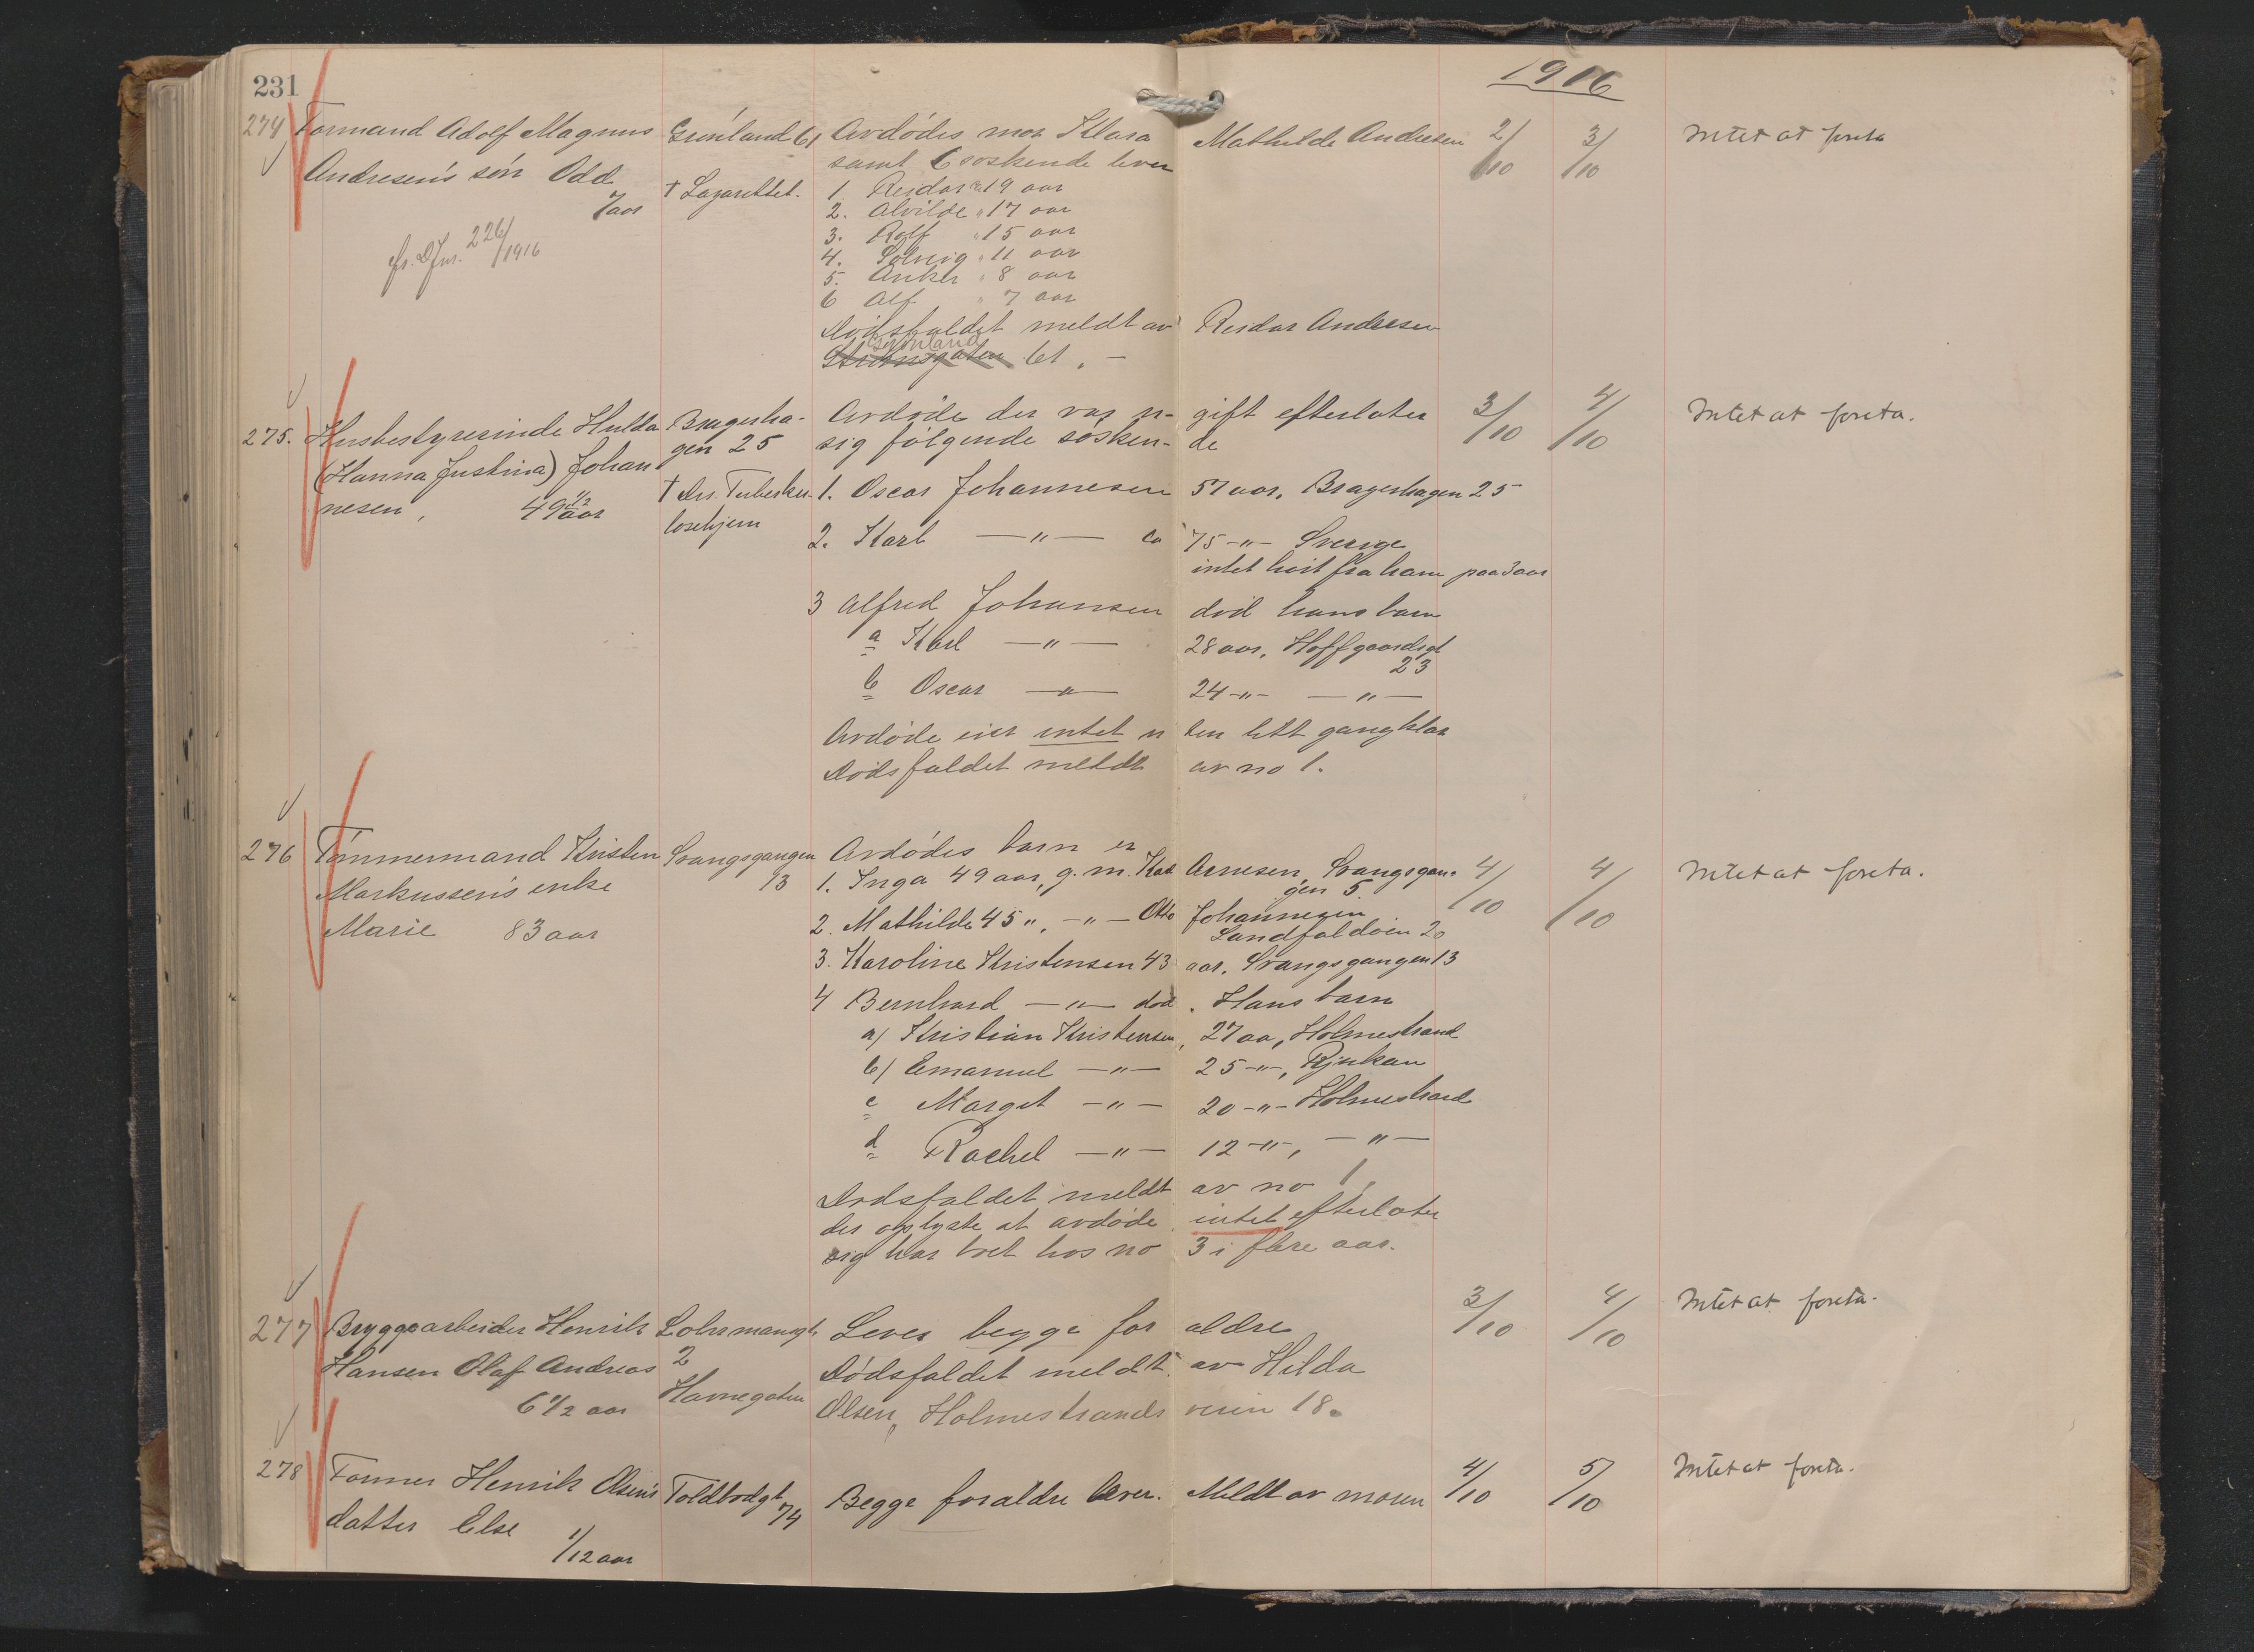 231
1916
274 Formand Adolf Magnus Grønland 61 Avdødes mor Klara Mathilde Andresen 2/10 3/10 Intet at foreta
Andresen's søn Odd samt 6 søskende lever
7 aar † Lazarettet. 1. Reidar 19 aar
2. Alvilde " 17 aar
3. Rolf " 15 aar
cfr. Djnr. 226/1916 4. Solveig " 11 aar
5. Anker " 8 aar
6 Alf " 7 aar
Dødsfaldet meldt av Reidar Andresen
Grønland
61. —
275. Husbestyrerinde Hulda Bragerha- Avdøde der var u- gift efterlater 3/10 4/10 Intet at foreta.
(Hanna Justina) Johan gen 25 sig følgende søsken- de
nesen, 49 1/2 aar † Drs. Tuberku- 1. Oscar Johannesen 57 aar, Bragerhagen 25
losehjem 2. Karl — " — ca 75 -"- Sverige
intet hört fra ham paa 3 aar
3 Alfred Johansen död hans barn
a Karl — " — 28 aar, Hoffgaardsgt
23
b Oscar — " — 24 -"- — " —
Avdøde eier intet u ten litt gangklær
Dødsfaldet meldt av no 1.
276 Tømmermand Kristen Svangsgangen Avdødes barn er
13 1. Inga 49 aar, g. m. Karl Arnesen Svangsgan- 4/10 4/10 Intet at foreta.
Markussen's enke gen 5.
Marie 83 aar 2. Mathilde 45 ", — " — Otto Johannesen
Landfaldöen 20
3. Karoline Kristensen 43 aar. Svangsgangen 13
4 Bernhard — " — död. Hans barn
a/ Kristian Kristensen, 27 aa, Holmestrand
b/ Emanuel — " — 25 -"-, Rjukan
c Margit — " — 20 -"- Holmestrand
d Rachel — " — 12 -"-, — " —
Dødsfaldet meldt av no 1,
der oplyste at avdøde intet efterlater
sig har boet hos no 3 i flere aar.
277 Bryggearbeider Henrik Lohrmansgt. Lever begge for ældre 3/10 4/10 Intet at foreta.
Hansen Olaf Andreas 2 Dødsfaldet meldt av Hilda
6 1/2 aar Havnegaten Olsen, Holmestrands veien 18.
278 Former Henrik Olsen's Toldbodgt Begge forældre lever. Meldt av moren 4/10 5/10 Intet at foreta.
datter Else 74
1/12 aar